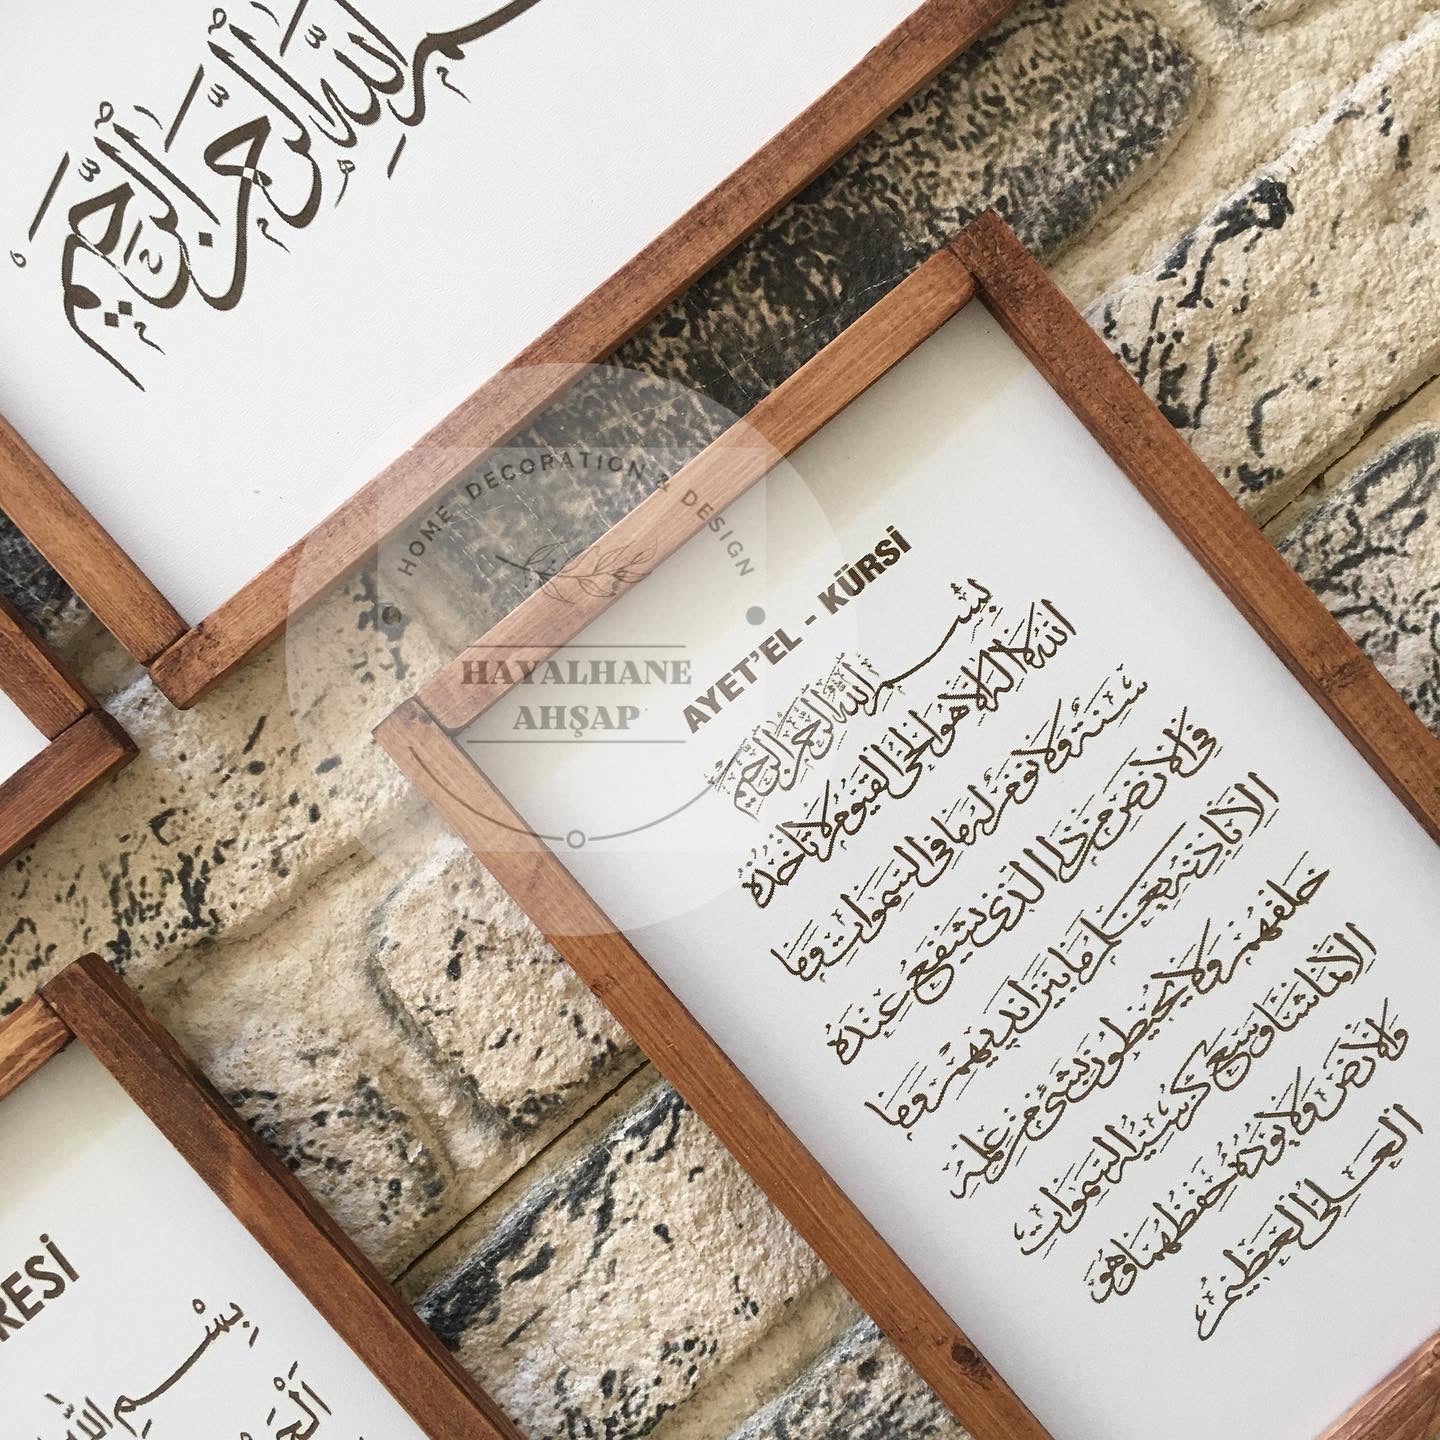 بسم الله الرحمن الرحيم
HOME DECORATION & DESIGN
HAYALHANE
AHŞAP
AYET'EL - KÜRSİ
بِسْمِ اللّٰهِ الرَّحْمٰنِ الرَّحِيمِ
اَللّٰهُ لَا اِلٰهَ اِلَّا هُوَ الْحَىُّ الْقَيُّومُ لَا تَاْخُذُهُ
سِنَةٌ وَلَا نَوْمٌ لَهُ مَا فِى السَّمٰوَاتِ وَمَا
فِى الْاَرْضِ مَنْ ذَا الَّذِى يَشْفَعُ عِنْدَهُ
اِلَّا بِاِذْنِهِ يَعْلَمُ مَا بَيْنَ اَيْدِيهِمْ وَمَا
خَلْفَهُمْ وَلَا يُحِيطُونَ بِشَىْءٍ مِنْ عِلْمِهِ
اِلَّا بِمَا شَاءَ وَسِعَ كُرْسِيُّهُ السَّمٰوَاتِ
وَالْاَرْضَ وَلَا يَؤُدُهُ حِفْظُهُمَا وَهُوَ
الْعَلِىُّ الْعَظِيمُ
RESİ
بِسْمِ اللّٰهِ